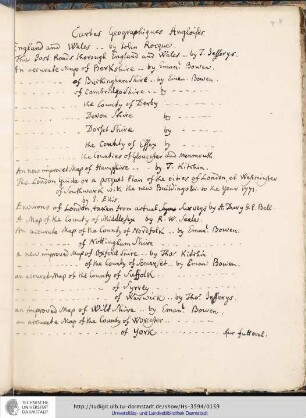 Cartes Geographiques Angloises
England and Wales .. by John Rocque
The Post Roads thorough England and Wales .. by T. Jefferys.
An accurate Map of Berkshire .. by Eman. Bowen.
of Buckinghamshire .. by Eman. Bowen.
of Cambridgeshire .. by
the County of Derby
Devon Shire by
Dorset Shire by
the County of Essex by
the Counties of Gloucester and Monmouth
An new improved Map of Hampshire .. by T. Kitchin.
The London guide or a pocket Plan of the cities of London et Westminster
of Southwark with the new Buildings etc to the Year 1771
by J. Ellis
Environs of London taken from actual Surveys by A. Dury & P. Bell
A Map of the County of Middlesex by R. W. Seale.
An accurate Map of the County of Nordfolk .. by Eman. Bowen.
of Nottingham Shire
a new improved Map of Oxford Shire .. by Tho. Kitchin
of the County of Somerset .. by Eman. Bowen.
an accurat Map of the County of Suffolk
of Surrey
of Warwick .. by Tho. Jefferys.
an improved Map of Wilt Shire .. by Eman. Bowen.
an accurate Map of the County of Worcester
of York
http://tudigit.ulb.tu-darmstadt.de/show/Hs-3594/0159
Universitäts- und Landesbibliothek Darmstadt
TECHNISCHE
UNIVERSITÄT
DARMSTADT